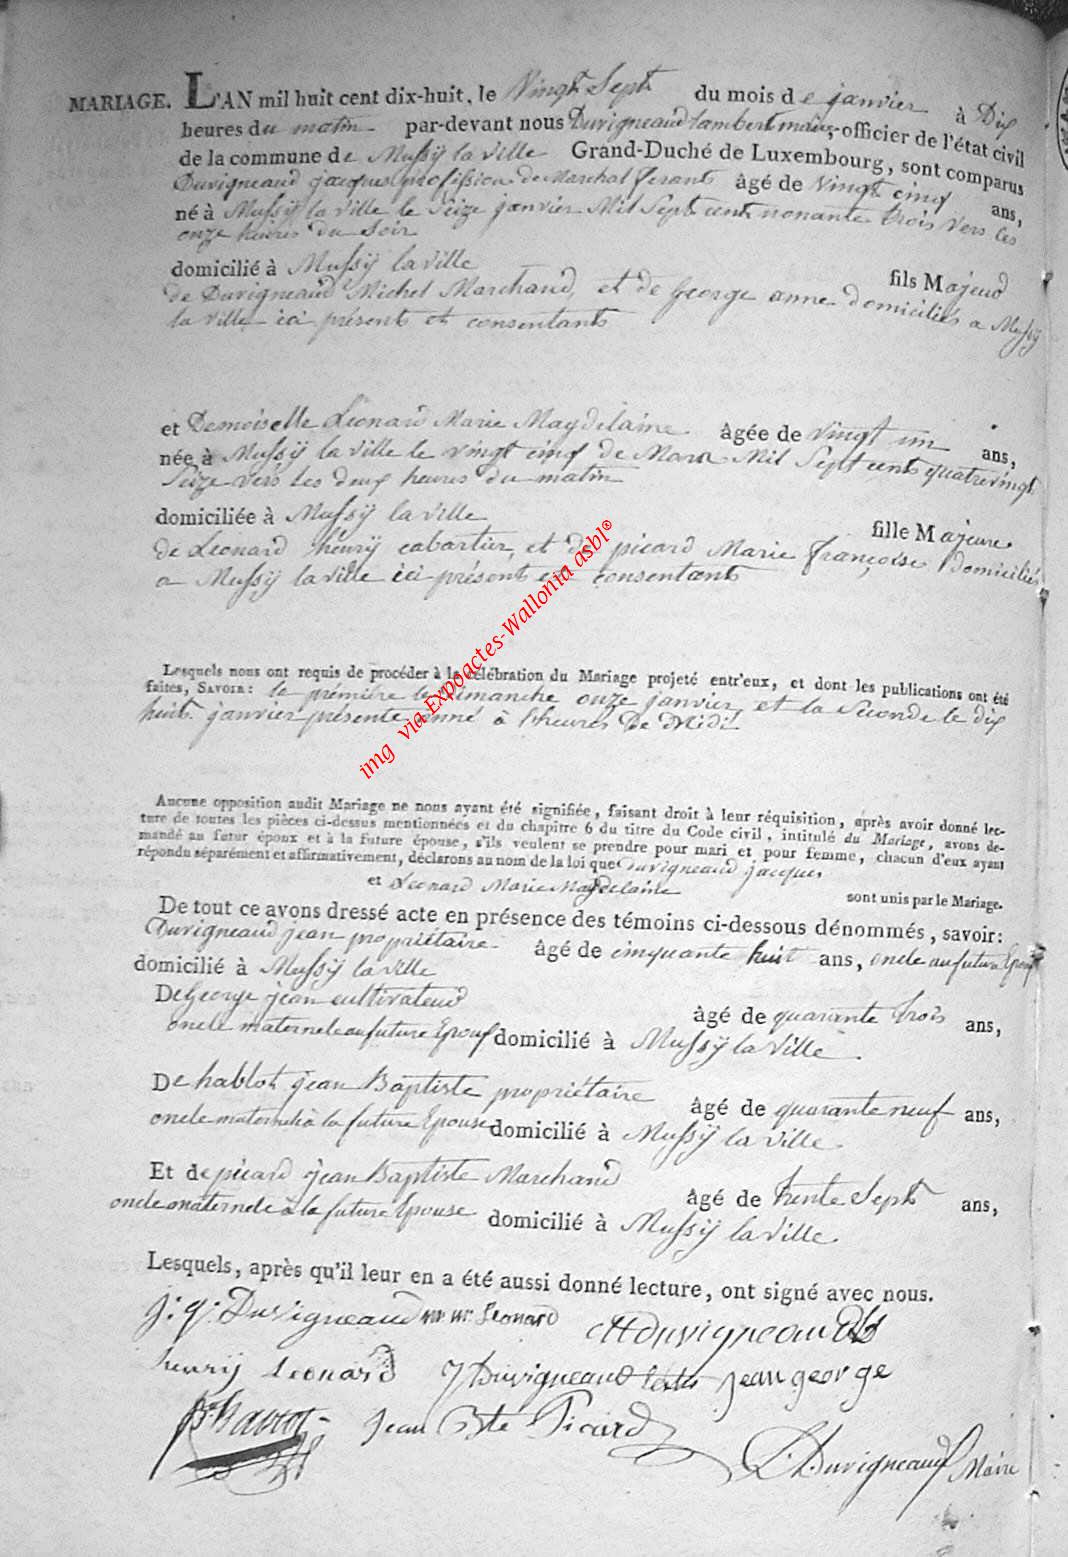 MARIAGE. L'AN mil huit cent dix-huit, le Vingt Sept du mois de janvier à Dix
heures du matin par-devant nous Duvigneaud Lambert maire, officier de l'état civil
de la commune de Mussÿ la ville Grand-Duché de Luxembourg, sont comparus
Duvigneaud jacques profission de Marchal ferant âgé de Vingt cinq ans,
né à Mussÿ la ville le Seize janvier Mil Sept cent nonante trois vers les
onze heures du Soir
domicilié à Mussÿ la ville fils Majeur
de Duvigneaud Michel Marchand, et de George anne domiciliés a Mussÿ
la ville ici présents et consentants
et Demoiselle Léonard Marie Magdelaine âgée de vingt un ans,
née à Mussÿ la ville le vingt cinq de Mars Mil Sept cents quatrevingt
Seize vers les deux heures du matin
domiciliée à Mussÿ la ville fille Majeure
de Leonard henrÿ cabartier, et de picard Marie françoise Domiciliés
a Mussÿ la ville ici présents et consentants
Lesquels nous ont requis de procéder à la célébration du Mariage projeté entr'eux, et dont les publications ont été
faites, SAVOIR: la première le dimanche onze janvier, et la Seconde le dix
huit janvier présente anné à l'heures De Midi
Aucune opposition audit Mariage ne nous ayant été signifiée, faisant droit à leur réquisition, après avoir donné lec-
ture de toutes les pièces ci-dessus mentionnées et du chapitre 6 du titre du Code civil, intitulé du Mariage, avons de-
mandé au futur époux et à la future épouse, s'ils veulent se prendre pour mari et pour femme, chacun d'eux ayant
répondu séparément et affirmativement, déclarons au nom de la loi que Duvigneaud jacques
et Leonard Marie Magdelaine sont unis par le Mariage.
De tout ce avons dressé acte en présence des témoins ci-dessous dénommés, savoir:
Duvigneaud jean propriétaire âgé de cinquante huit ans, oncle au future Epoux
domicilié à Mussÿ la ville
De George jean cultivateur âgé de quarante trois ans,
oncle maternele au future Epoux domicilié à Mussÿ la Ville
De hablot jean Baptiste propriétaire âgé de quarante neuf ans,
oncle maternele à la future Epouse domicilié à Mussÿ la Ville
Et de picard jean Baptiste Marchand âgé de trente Sept ans,
oncle maternele à la future Epouse domicilié à Mussÿ la ville
Lesquels, après qu'il leur en a été aussi donné lecture, ont signé avec nous.
j: q: Duvigneaud m: m: Leonard Duvigneaud
henrÿ Leonard J Duvigneaud jean george
hablot Jean Bte Picard
L: Duvigneaud Maire
img via Expoactes-Wallonia asbl®